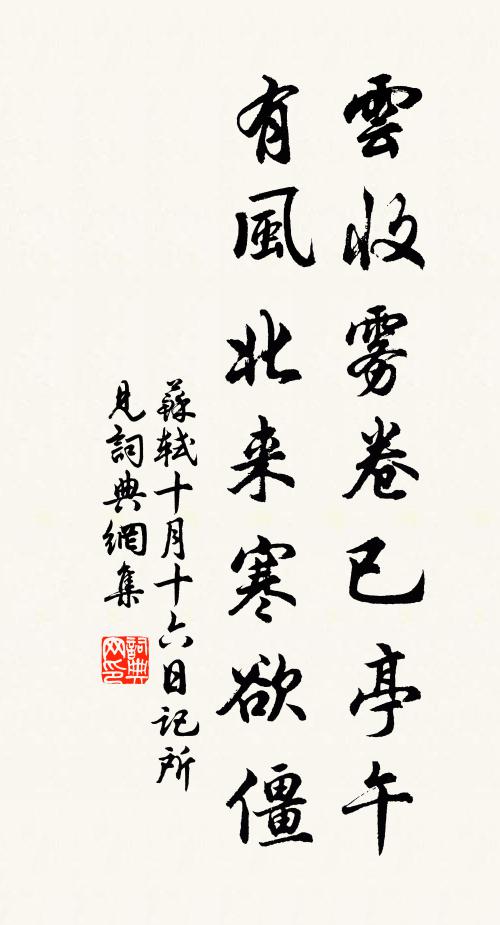 雲收雾卷已亭午
有風北来寒欲僵
蘇軾十月十六日記所
見詞典網集
詞典
网印